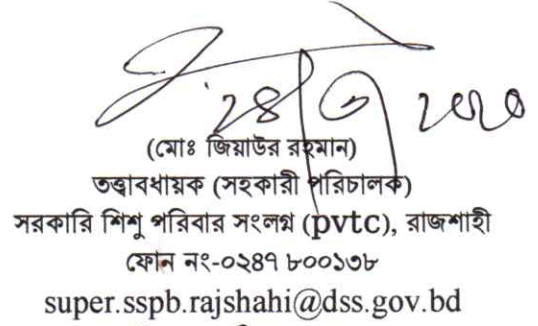 (মোঃ জিয়াউর রহমান)
তত্ত্বাবধায়ক (সহকারী পরিচালক)
সরকারি শিশু পরিবার সংলগ্ন (pvtc), রাজশাহী
ফোন নং-০২৪৭ ৮০০১৩৮
super.sspb.rajshahi@dss.gov.bd